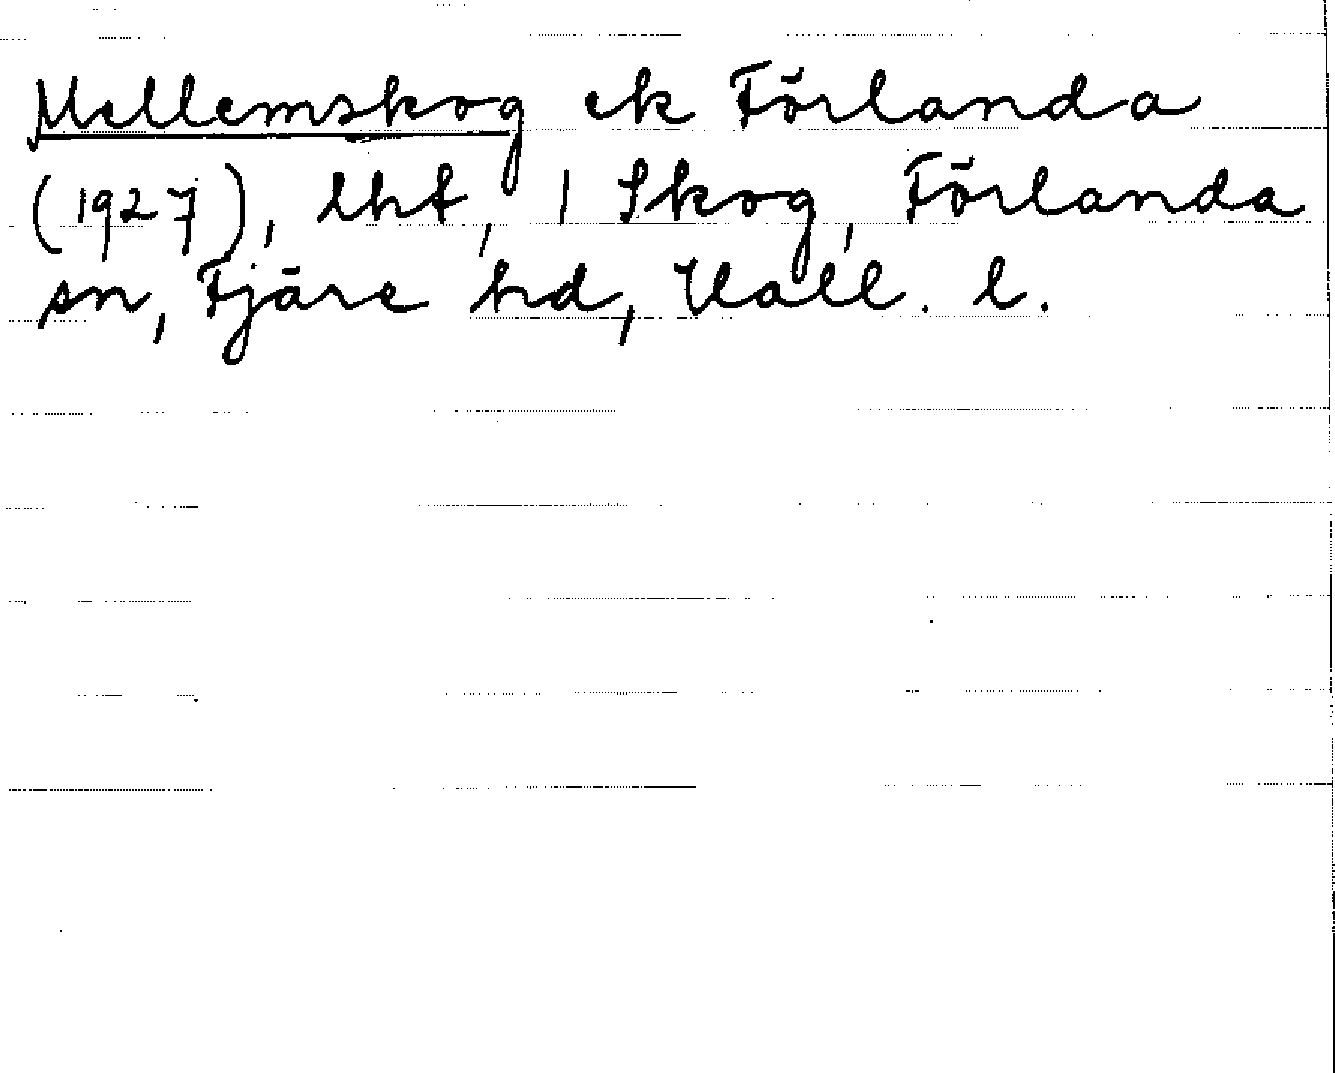 Mellemskog ek Förlanda
(1927), lht, 1 Skog, Förlanda
sn, Fjäre hd, Hall. l.